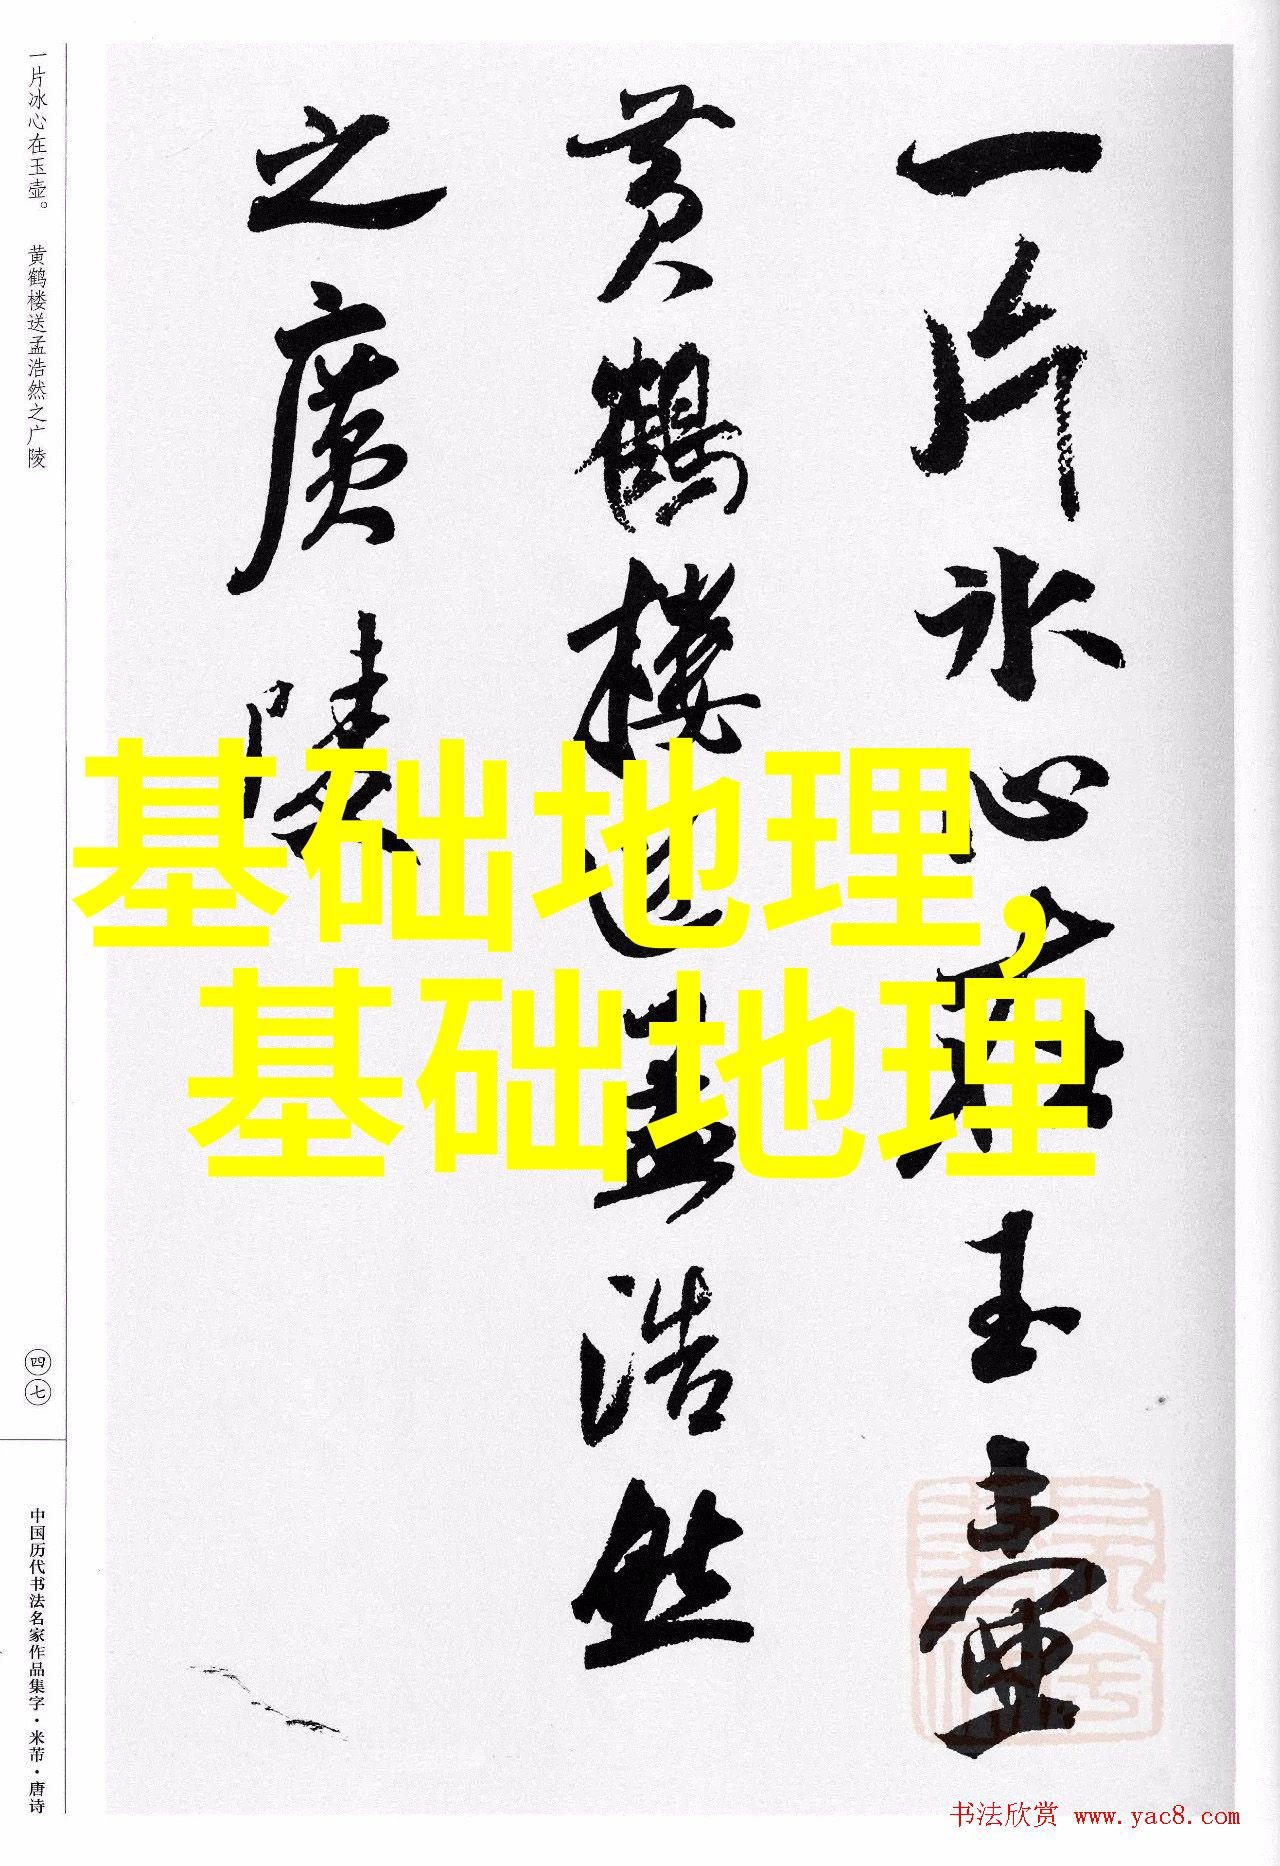 一片冰心在玉壶
黄鹤楼送孟浩然
之广陵
一片冰心在玉壶。 黄鹤楼送孟浩然之广陵
四七
中国历代书法名家作品集字·米芾·唐诗
基础地理,
基础地理
书法欣赏 www.yac8.com